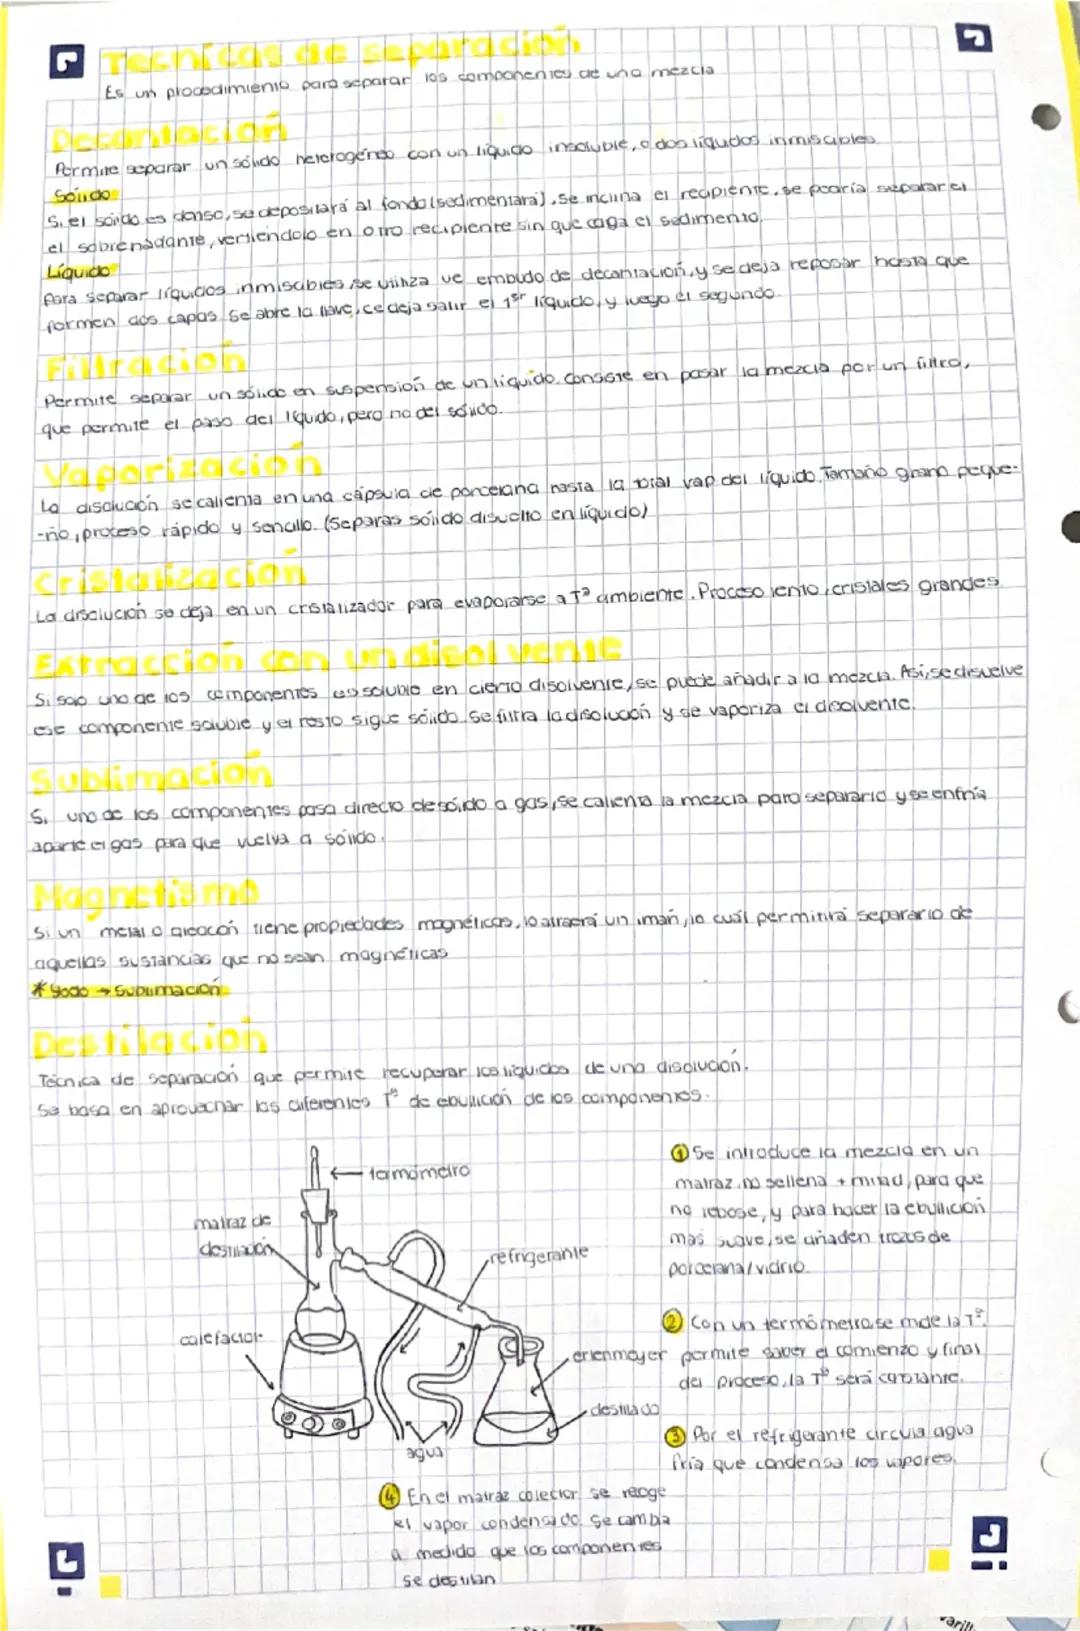 Tecnicas de separación
Es un procedimiento para separar los componentes de una mezcla
Decantación
Permite separar un sólido heterogéneo con un líquido insoluble, o dos líquidos inmiscibles.
Sólido
Si el sólido es denso, se depositará al fondo (sedimentará). Se inclina el recipiente, se podría separar el
el sobrenadante, vertiendolo en otro recipiente sin que caga el sedimento.
Líquido
Para separar líquidos inmiscibles, se utiliza ve embudo de decantación, y se deja reposar hasta que
formen dos capas. Se abre la llave, ce deja salir el 1er líquido, y luego el segundo.
Filtración
Permite separar un sólido en suspensión de un líquido. Consiste en pasar la mezcla por un filtro,
que permite el paso del líquido, pero no del sólido.
Vaporización
La disolución se calienta en una cápsula de porcelana hasta la total vap del líquido. Tamaño grano peque-
-ño, proceso rápido y sencillo. (Separas sólido disuelto en líquido)
Cristalización
La disolución se deja en un cristalizador para evaporarse a Tª ambiente. Proceso lento, cristales grandes
Extracción con un disolvente
Si solo uno de los componentes es soluble en cierto disolvente, se puede añadir a la mezcla. Así, se disuelve
ese componente soluble y el resto sigue sólido. Se filtra la disolución y se vaporiza el disolvente.
Sublimación
Si uno de los componentes pasa directo de sólido a gas, se calienta la mezcla para separarlo y se enfría
aparte el gas para que vuelva a sólido.
Magnetismo
Si un metal o aleación tiene propiedades magnéticas, lo atraerá un imán, lo cuál permitirá separarlo de
aquellas sustancias que no sean magnéticas
* Yodo → Sublimación
Destilación
Técnica de separación que permite recuperar los líquidos de una disolución.
Se basa en aprovechar las diferentes Tª de ebullición de los componentes.
termómetro
matraz de
destilación
refrigerante
calefactor
erlenmeyer
destilado
agua
① Se introduce la mezcla en un
matraz, no se llena + mitad, para que
no rebose, y para hacer la ebullición
más suave, se añaden trozos de
porcelana/vidrio.
② Con un termómetro se mide la Tª.
permite saber el comienzo y final
del proceso, la Tª será constante.
③ Por el refrigerante circula agua
fría que condensa los vapores.
④ En el matraz colector se recoge
el vapor condensado. Se cambia
a medida que los componentes
se destilan